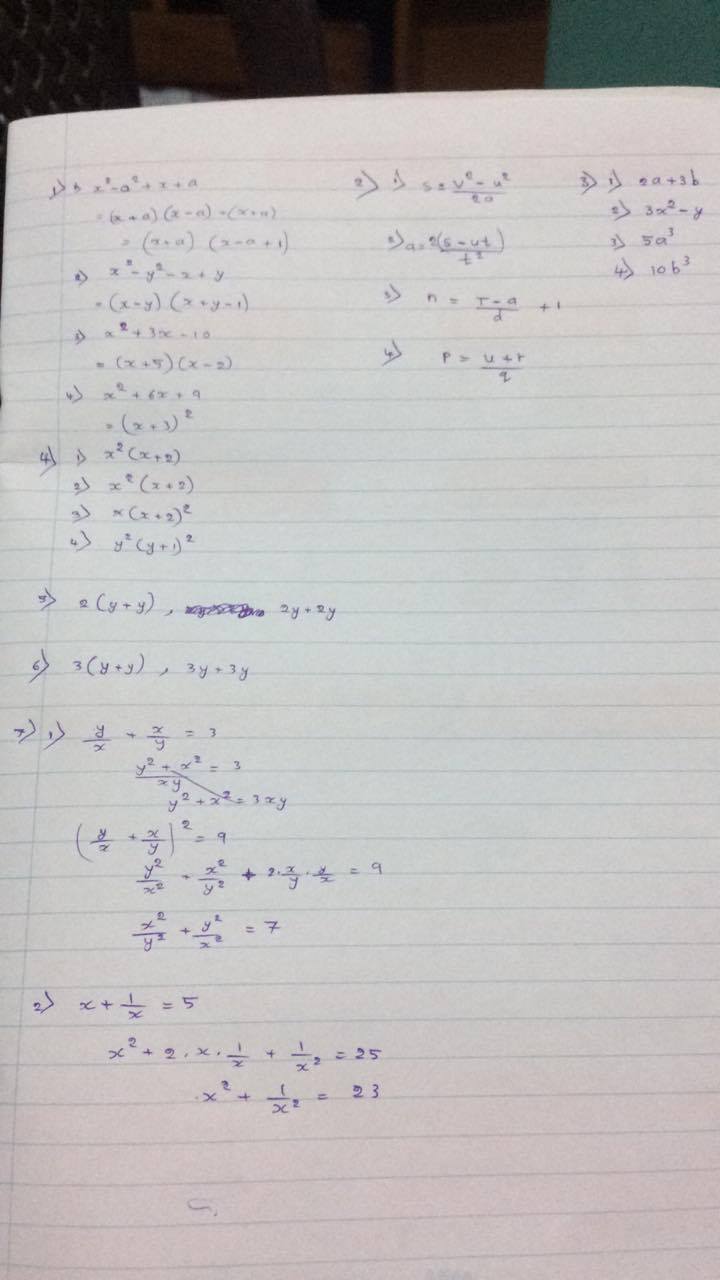 1) 1) x² - a² + x + a
= (x + a) (x - a) + (x + a)
= (x + a) (x - a + 1)
2) x² - y² - x + y
= (x - y) (x + y - 1)
3) x² + 3x - 10
= (x + 5) (x - 2)
4) x² + 6x + 9
= (x + 3)²
2) 1) s = (v² - u²)/2a
2) a = 2(s - ut)/t²
3) n = (T - a)/d + 1
4) P = (u + r)/q
3) 1) 2a + 3b
2) 3x² - y
3) 5a³
4) 10b³
4) 1) x² (x + 2)
2) x² (x + 2)
3) x (x + 2)²
4) y² (y + 1)²
5) 2 (y + y) , 2y + 2y
6) 3 (y + y) , 3y + 3y
7) 1) y/x + x/y = 3
(y² + x²)/xy = 3
y² + x² = 3xy
(y/x + x/y)² = 9
y²/x² + x²/y² + 2 · x/y · y/x = 9
x²/y² + y²/x² = 7
2) x + 1/x = 5
x² + 2 . x . 1/x + 1/x² = 25
x² + 1/x² = 23